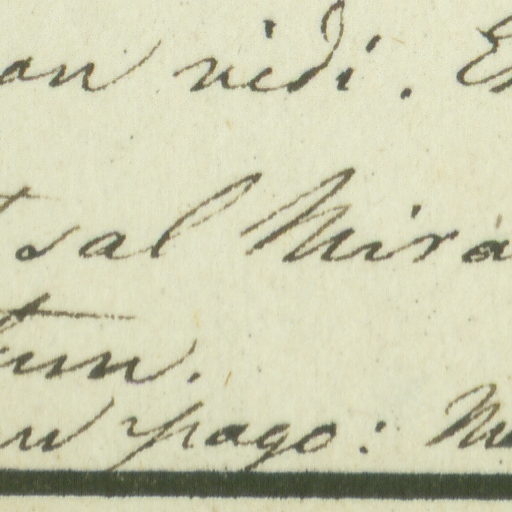 an vidi. E
sal Mira
tum.
pago: M